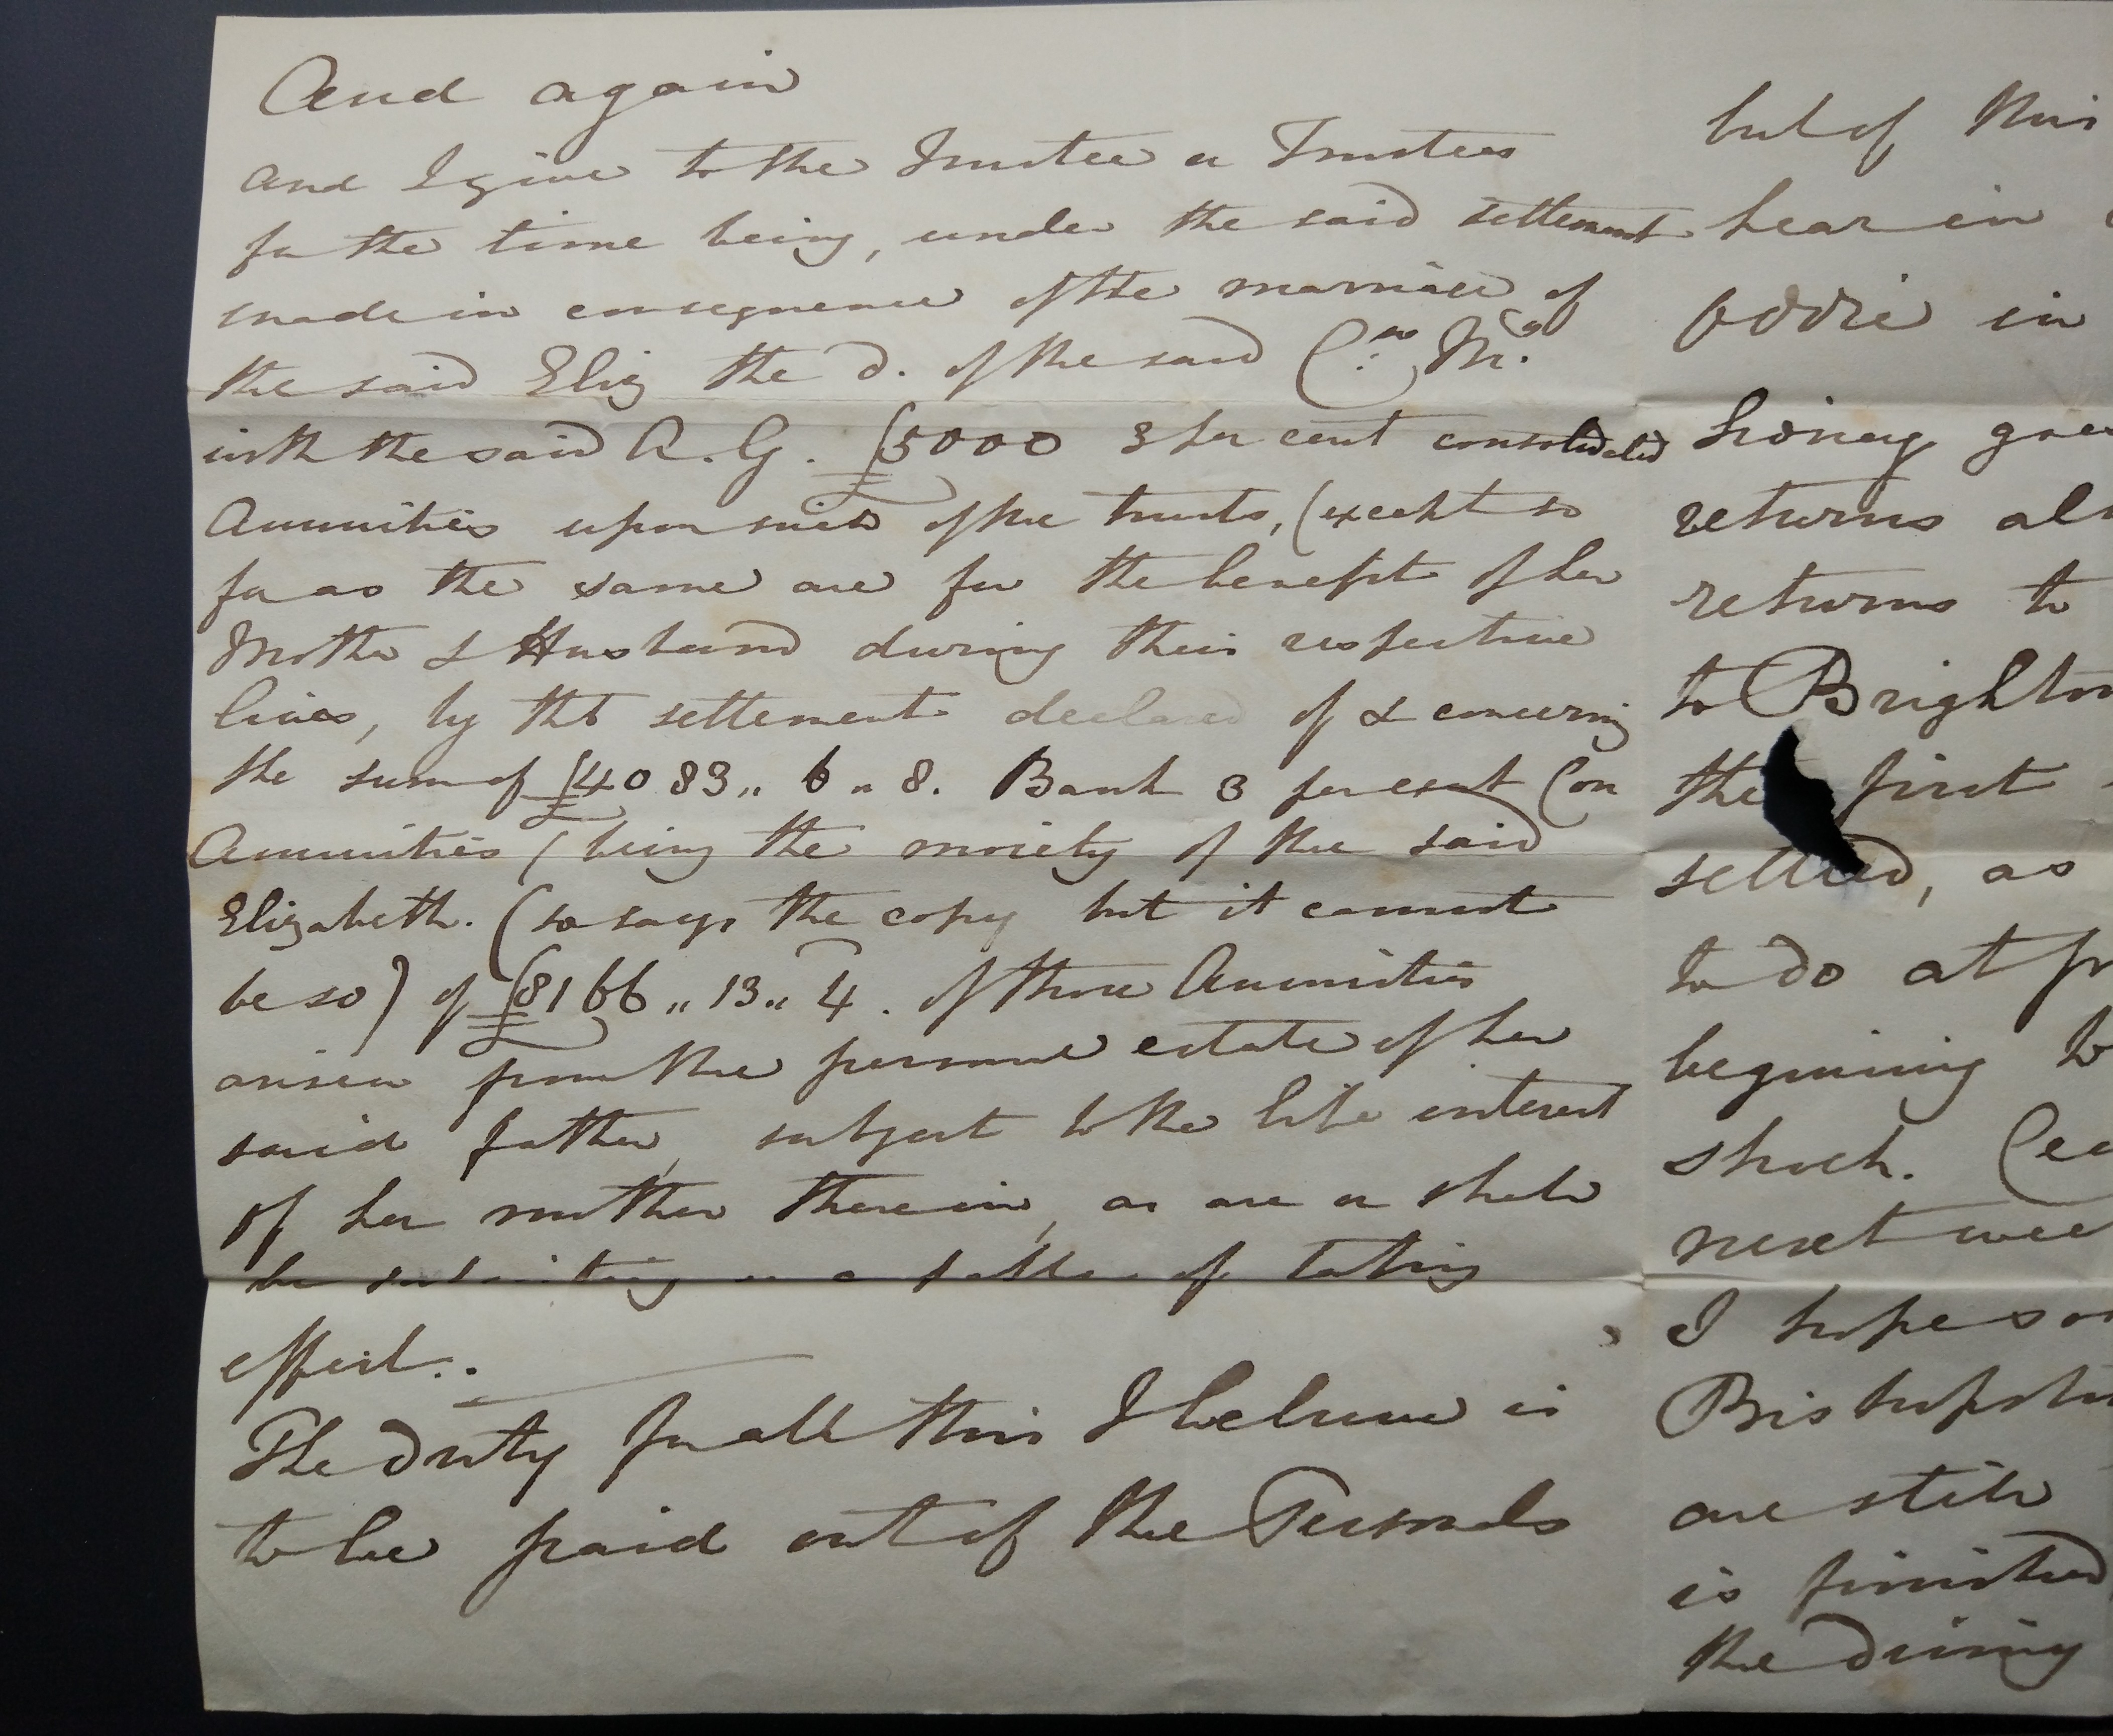 And again
and I give to the Trustee or Trustees
for the time being, under the said settlement
made in consequence of the marriage of
the said Eliz the d. of the said M.
with the said A. G. £5000 3 per cent consolidated
Annuities upon such of the trusts, (except so
far as the same are for the benefit of her
Mother & Husband during their respective
lives, by tht settlement declared of & concerning
the sum of £4083,, 6,, 8. Bank 3 per cent Con
Annuities (being the moiety of the said
Elizabeth. (so says the copy but it cannot
be so) of £8166,, 13,, 4. of those Annuities
arisen from the personal estate of her
said father, subject to the life interest
of her mother therein, as are or shall
be subsisting or capable of taking
effect..
The duty for all this I believe is
to be paid out of the Personals
but of this
hear in
in
Sidney goes
returns
returns to
to Brighton
the first
settled, as
to do at pr
beginning to
shock.
next wee
I hope so
Bishopsto
are still
is finished
the dining